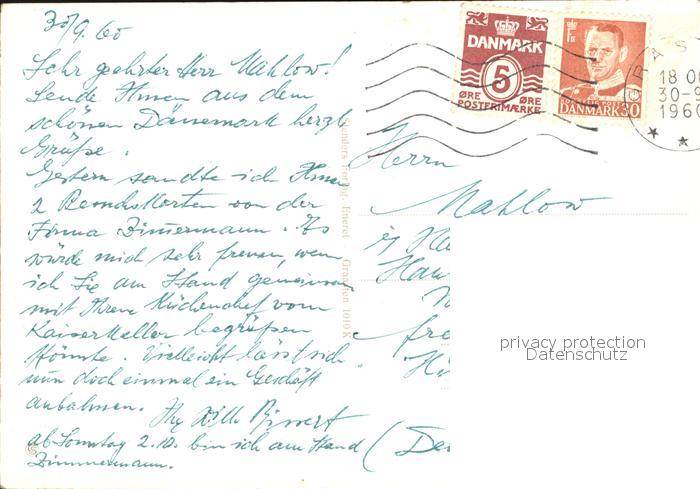 30/9. 60
Sehr geehrter Herr Mahlow!
Sende Ihnen aus dem
schönen Dänemark herzl.
Grüße.
Gestern sandte ich Ihnen
2 Besuchskarten von der
Firma Zimmermann. Es
würde mich sehr freuen, wenn
ich Sie am Stand gemeinsam
mit Ihrem Küchenchef vom
Kaiserkeller begrüßen
könnte. Vielleicht lässt sich
nun doch einmal ein Geschäft
anbahnen. Ihr Willi
ab Sonntag 2.10. bin ich am Stand
Zimmermann.
DANMARK
5
ØRE ØRE
POSTFRIMÆRKE
DANMARK 30
18 00
30-9
1960
Herrn
Mahlow
privacy protection
Datenschutz
Eneret